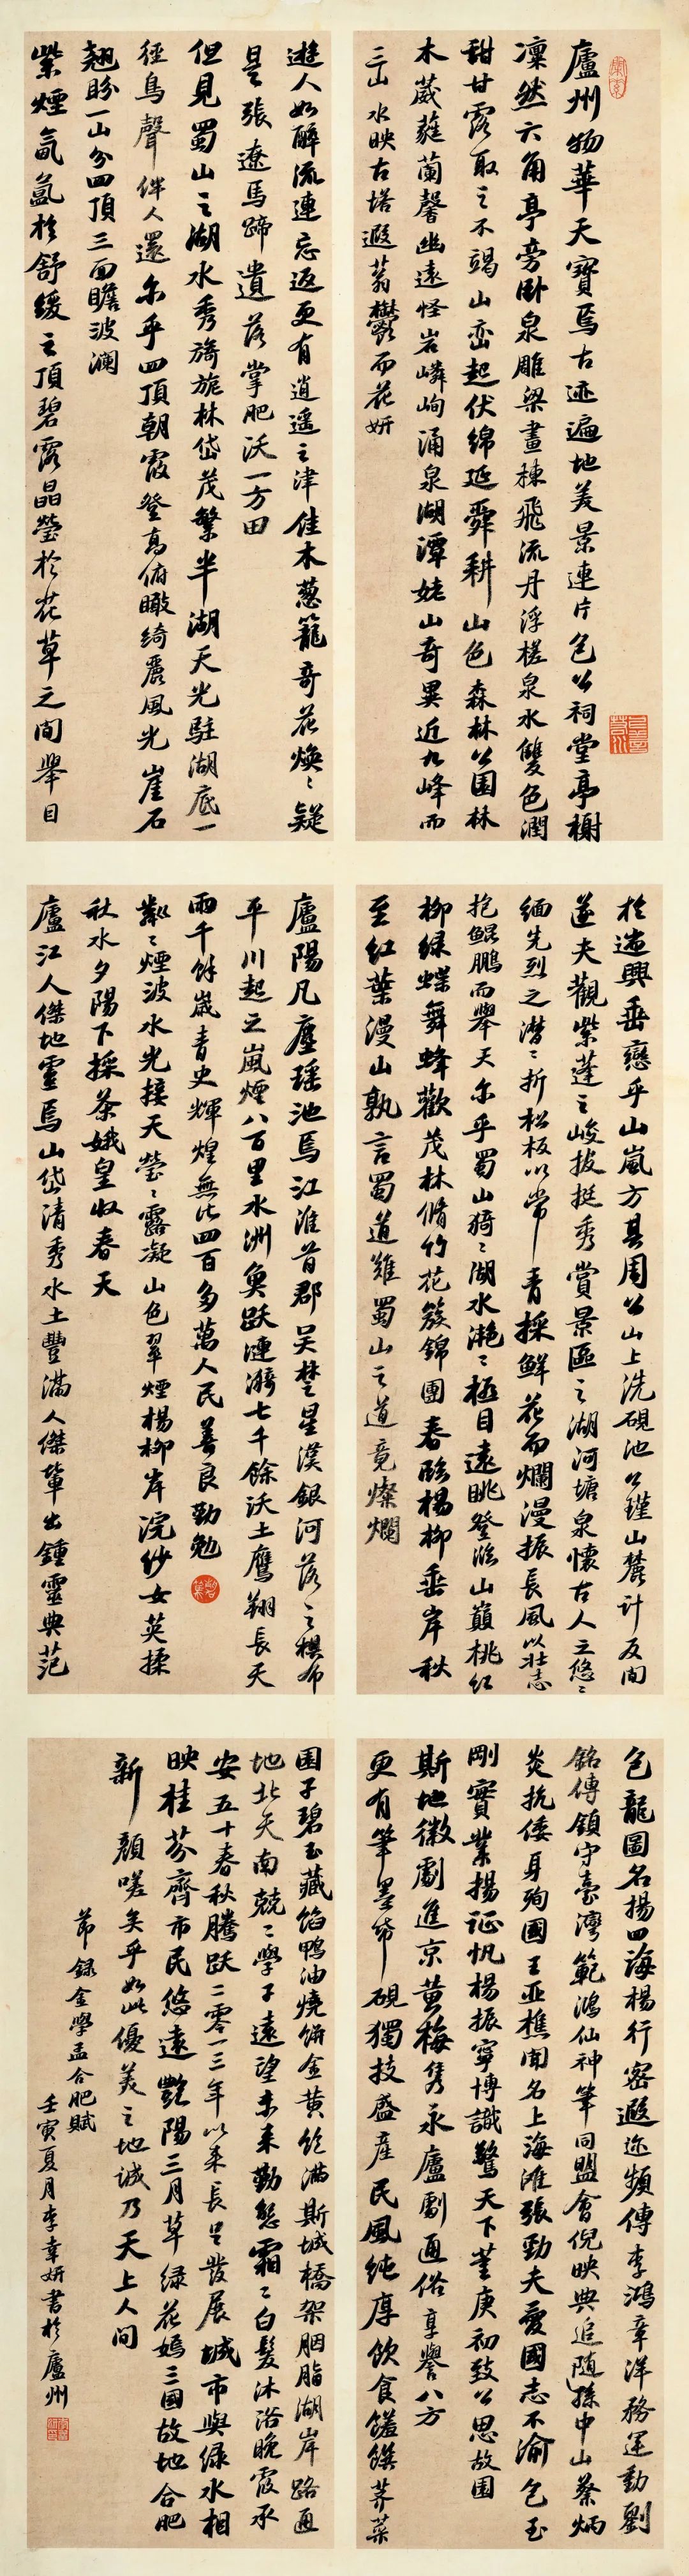 廬州物華天寶焉古迹遍地美景連片包公祠堂亭榭
凜然六角亭旁卧泉雕梁畫棟飛流丹浮槎泉水雙色潤
甜甘露取之不竭山巒起伏綿延舜耕山色森林公園林
木葳蕤蘭馨幽遠怪岩嶙峋涌泉湖潭姥山奇異近九峰而
三山水映古塔遐蓊鬱而花妍
遊人如醉流連忘返更有逍遥之津佳木蔥籠奇花煥〻疑
是張遼馬蹄遺落掌肥沃一方田
但見蜀山之湖水秀旖旎林岱茂繁半湖天光駐湖底一
徑鳥聲伴人還尔乎四頂朝霞登高俯瞰綺麗風光崖石
翹盼一山分四頂三面瞻波瀾
紫煙氤氳於舒緩之頂碧露晶瑩於花草之間舉目
於遄興垂戀乎山嵐方其周公山上洗硯池公瑾山麓計反間
遂夫觀紫蓬之峻拔挺秀賞景區之湖河塘泉懷古人之悠〻
緬先烈之潸〻折松板以常青採鮮花而爛漫振長風以壯志
抱鲲鵬而舉天尔乎蜀山猗〻湖水滟〻極目遠眺登臨山巔桃红
柳绿蝶舞蜂歡茂林脩竹花簇錦團春臨楊柳垂岸秋
至红葉漫山孰言蜀道難蜀山之道竟燦爛
廬陽凡塵瑶池焉江淮首郡吴楚星漢銀河落之棋布
平川起之嵐煙八百里水洲魚跃漣漪七千餘沃土鷹翔長天
兩千餘歲青史輝煌無比四百多萬人民善良勤勉
粼〻煙波水光接天瑩〻露凝山色翠煙楊柳岸浣纱女英揉
秋水夕陽下採茶娥皇收春天
廬江人傑地靈焉山岱清秀水土豐滿人傑輩出鍾靈典范
包龍圖名揚四海楊行密遐迩頻傳李鴻章洋務運動劉
銘傳鎮守臺灣範鴻仙神筆同盟會倪映典追随孫中山蔡炳
炎抗倭身殉國王亞樵聞名上海滩張勁夫愛國志不渝包玉
剛實業揚征帆楊振寧博識驚天下董庚初致公思故園
斯地徽劇進京黄梅隽永廬劇通俗享譽八方
更有筆墨紙硯獨技盛産民風純厚飲食饈饌荠菜
團子碧玉藏馅鴨油燒餅金黄飽滿斯城橋架胭脂湖岸路通
地北天南兢〻學子遠望未来勤懇霜〻白髮沐浴晚霞承
安五十春秋騰跃二零一三年以来長足發展城市與绿水相
映桂芬齊市民悠遠艷陽三月草绿花嫣三國故地合肥
新顔嗟矣乎如此優美之地誠乃天上人间
節録金學孟合肥賦
壬寅夏月李幸妍書於廬州